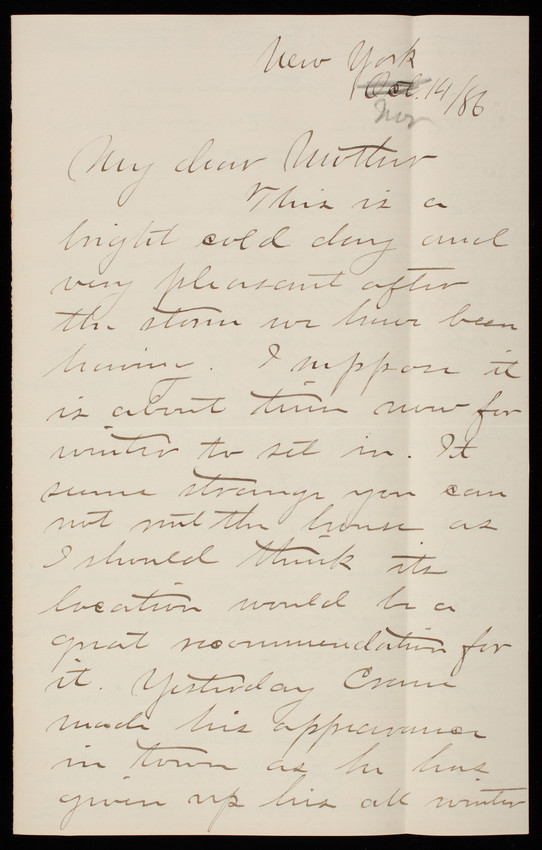 New York
Oct. 14/86
Nov
My dear Mother
This is a
bright cold day and
very pleasant after
the storm we have been
having. I suppose it
is about time now for
winter to set in. It
seems strange you can
not rent the house as
I should think its
location would be a
great recommendation for
it. Yesterday Crane
made his appearance
in town as he has
given up his all winter